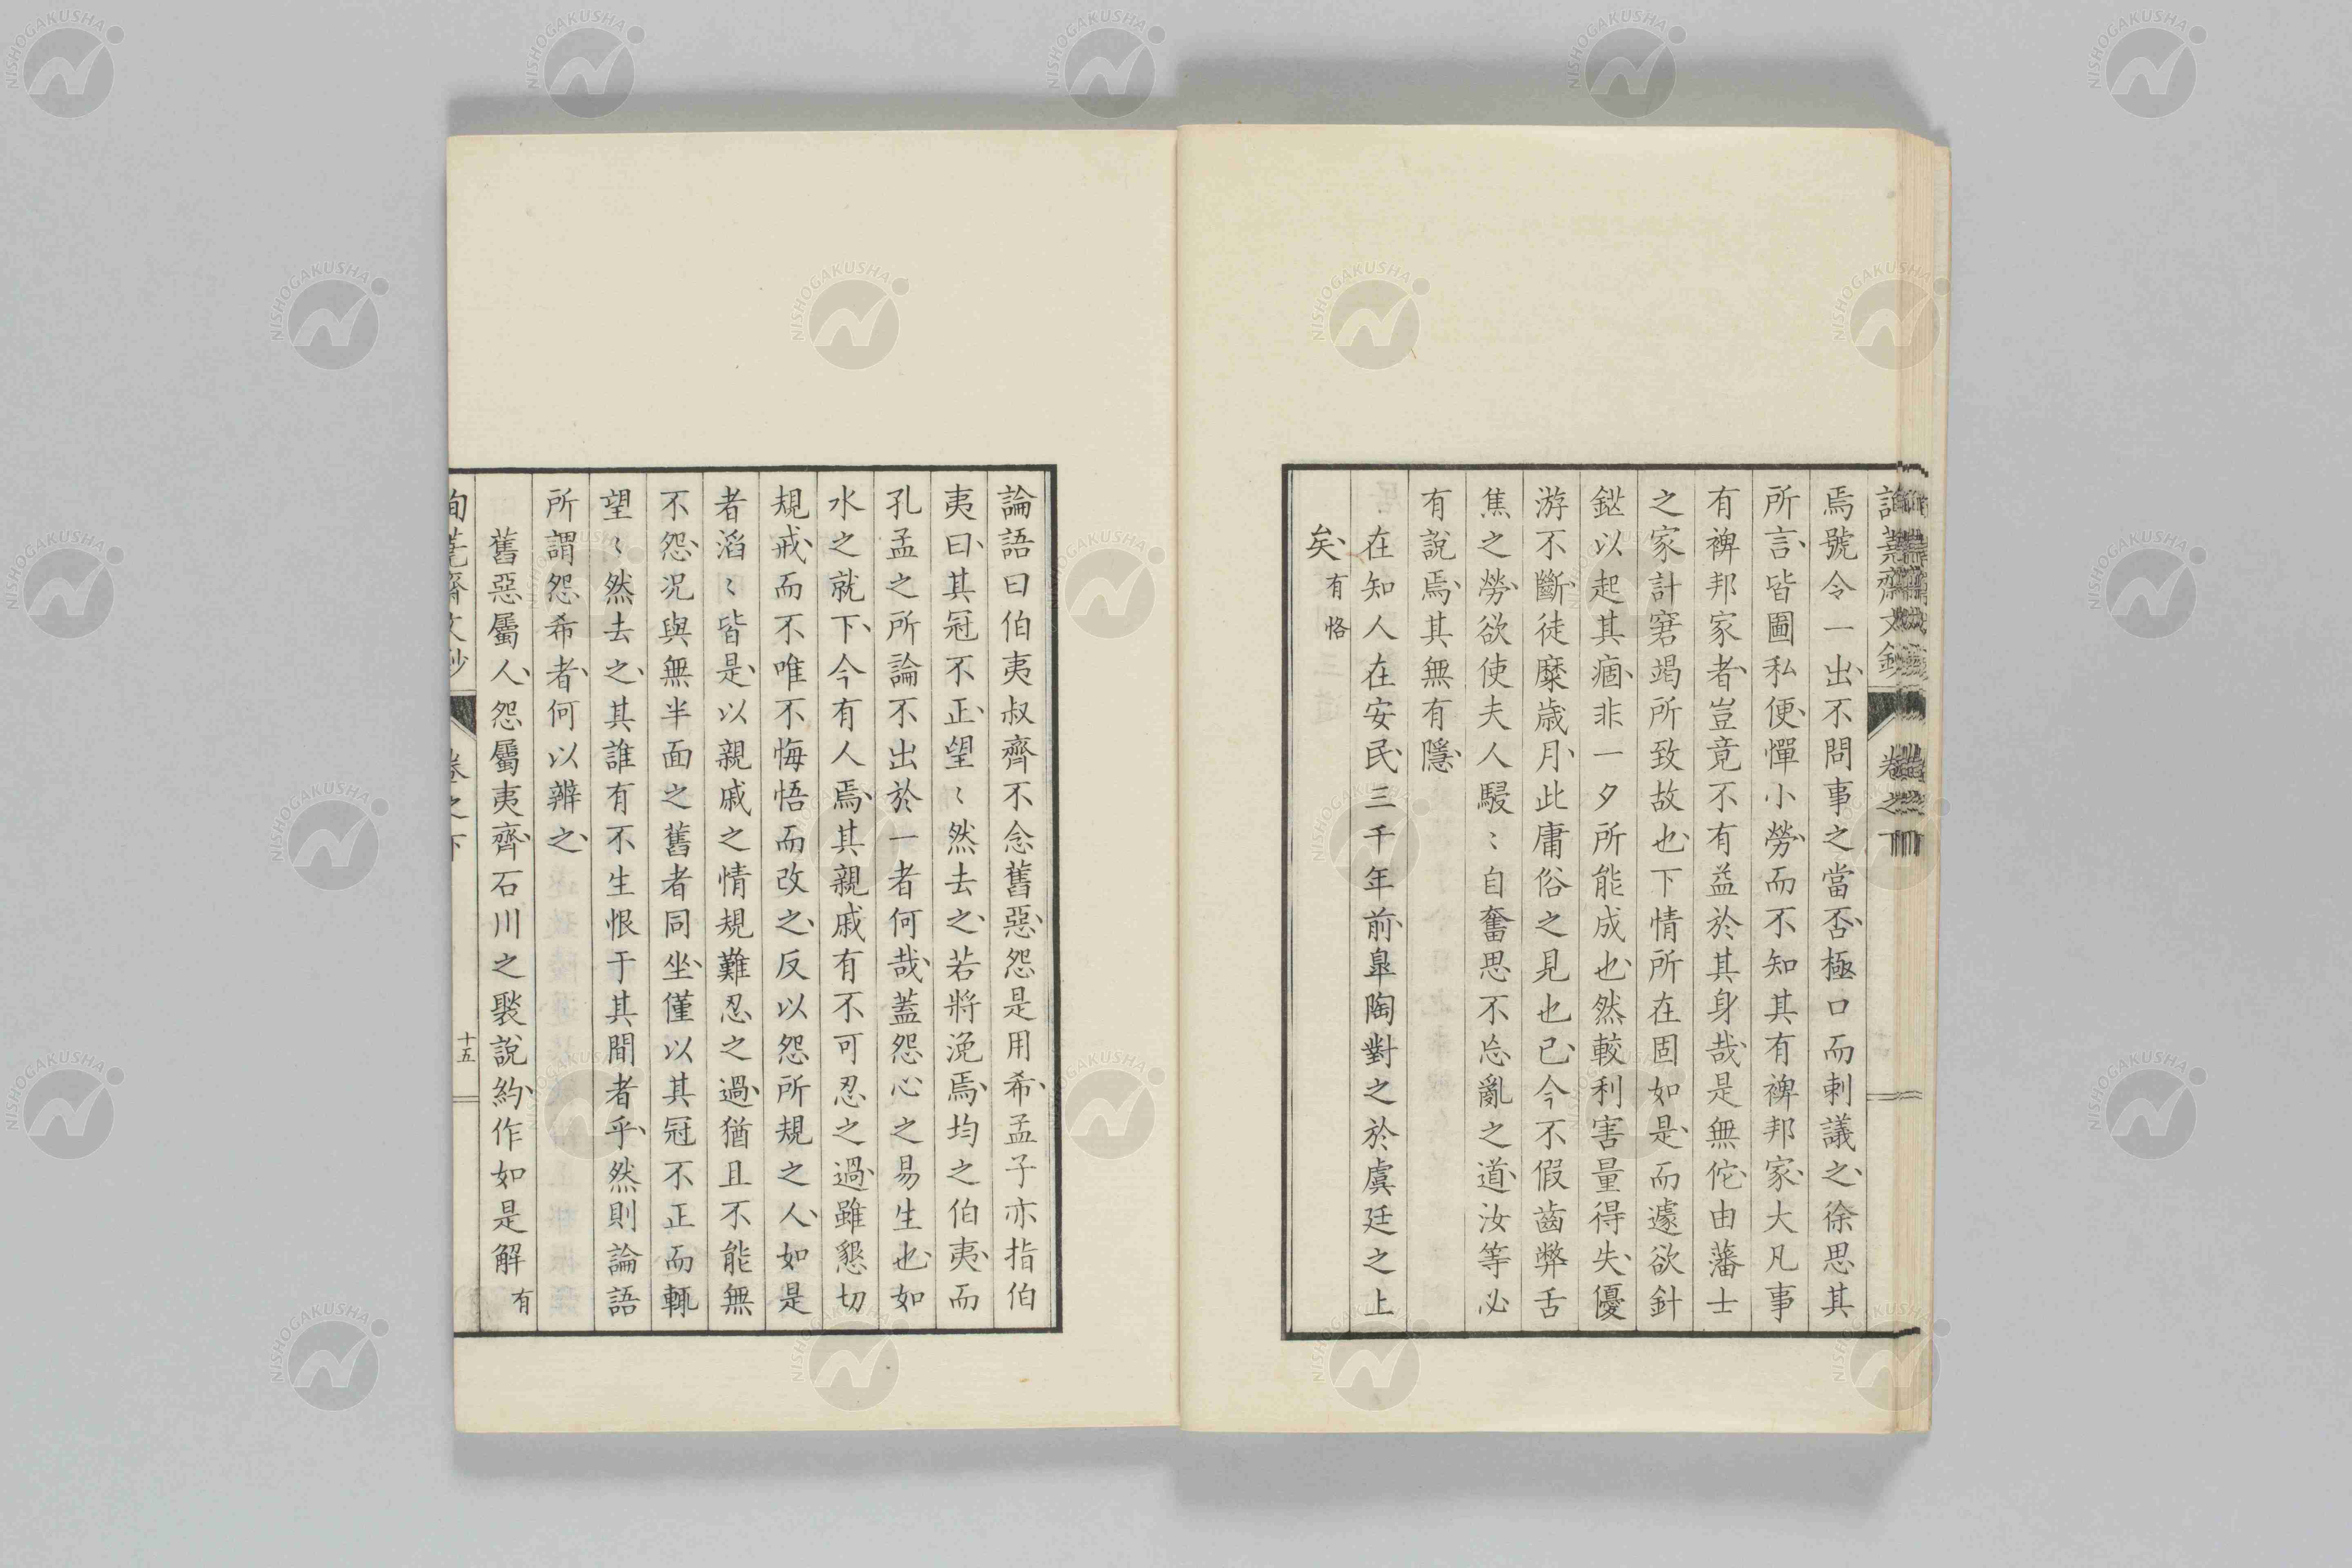 焉號令一出、不問事之當否、極口而刺議之、徐思其
所言、皆圖私便、憚小勞、而不知其有裨邦家、大凡事
有裨邦家者、豈竟不有益於其身哉、是無佗、由藩士
之家計窘竭所致故也、下情所在固如是、而遽欲針
鎰以起其痼、非一夕所能成也、然較利害量得失、優
游不斷、徒糜歲月、此庸俗之見也已、今不假齒弊舌
焦之勞、欲使夫人駸〻自奮思不忘亂之道、汝等必
有說焉、其無有隱、
在知人在安民、三千年前、皐陶對之於虞廷之上
矣、有恪
論語曰伯夷叔齊不念舊惡、怨是用希、孟子亦指伯
夷曰、其冠不正、望〻然去之、若將浼焉、均之伯夷、而
孔孟之所論不出於一者何哉、蓋怨心之易生也、如
水之就下、今有人焉、其親戚有不可忍之過、雖懇切
規戒、而不唯不悔悟而改之、反以怨所規之人、如是
者滔〻皆是、以親戚之情規難忍之過、猶且不能無
不怨、况與無半面之舊者同坐、僅以其冠不正而輒
望〻然去之、其誰有不生恨于其間者乎、然則論語
所謂怨希者、何以辨之、
舊惡屬人、怨屬夷齊、石川之褧說約、作如是解 有
卷之下
十五